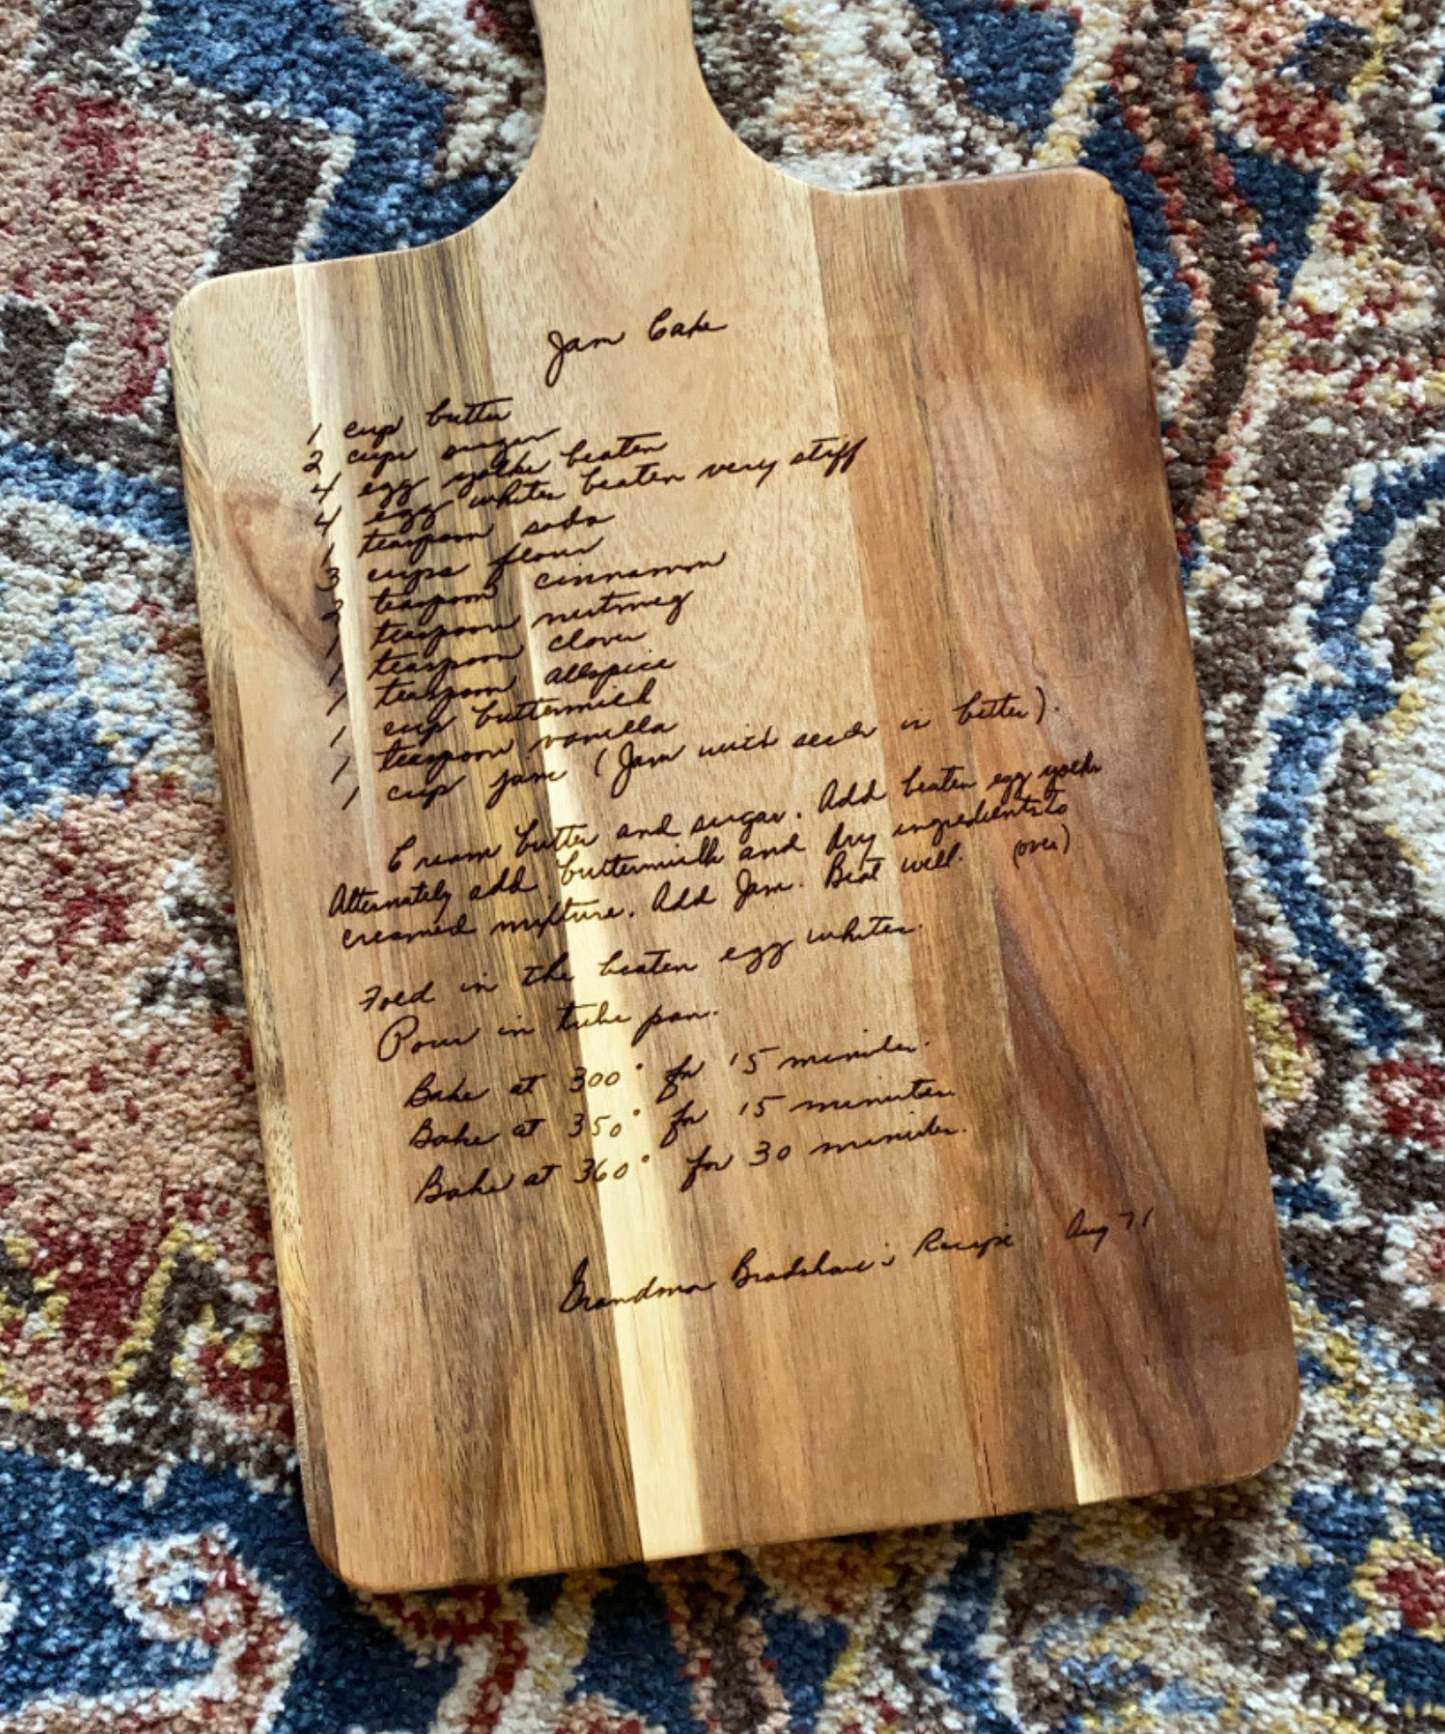 Jam Cake
1 cup butter
2 cups sugar
4 egg yolks beaten
4 egg whites beaten very stiff
1 teaspoon soda
3 cups flour
2 teaspoons cinnamon
1 teaspoon nutmeg
1 teaspoon cloves
1 teaspoon allspice
1 cup buttermilk
1 teaspoon vanilla
1 cup jam (Jam with seeds is better).
Cream butter and sugar. Add beaten egg yolks
Alternately add buttermilk and dry ingredients to
creamed mixture. Add Jam. Beat well. (over)
Fold in the beaten egg whites.
Pour in tube pan.
Bake at 300° for 15 minutes.
Bake at 350° for 15 minutes.
Bake at 360° for 30 minutes.
Grandma Bradshaw's Recipe Aug 71